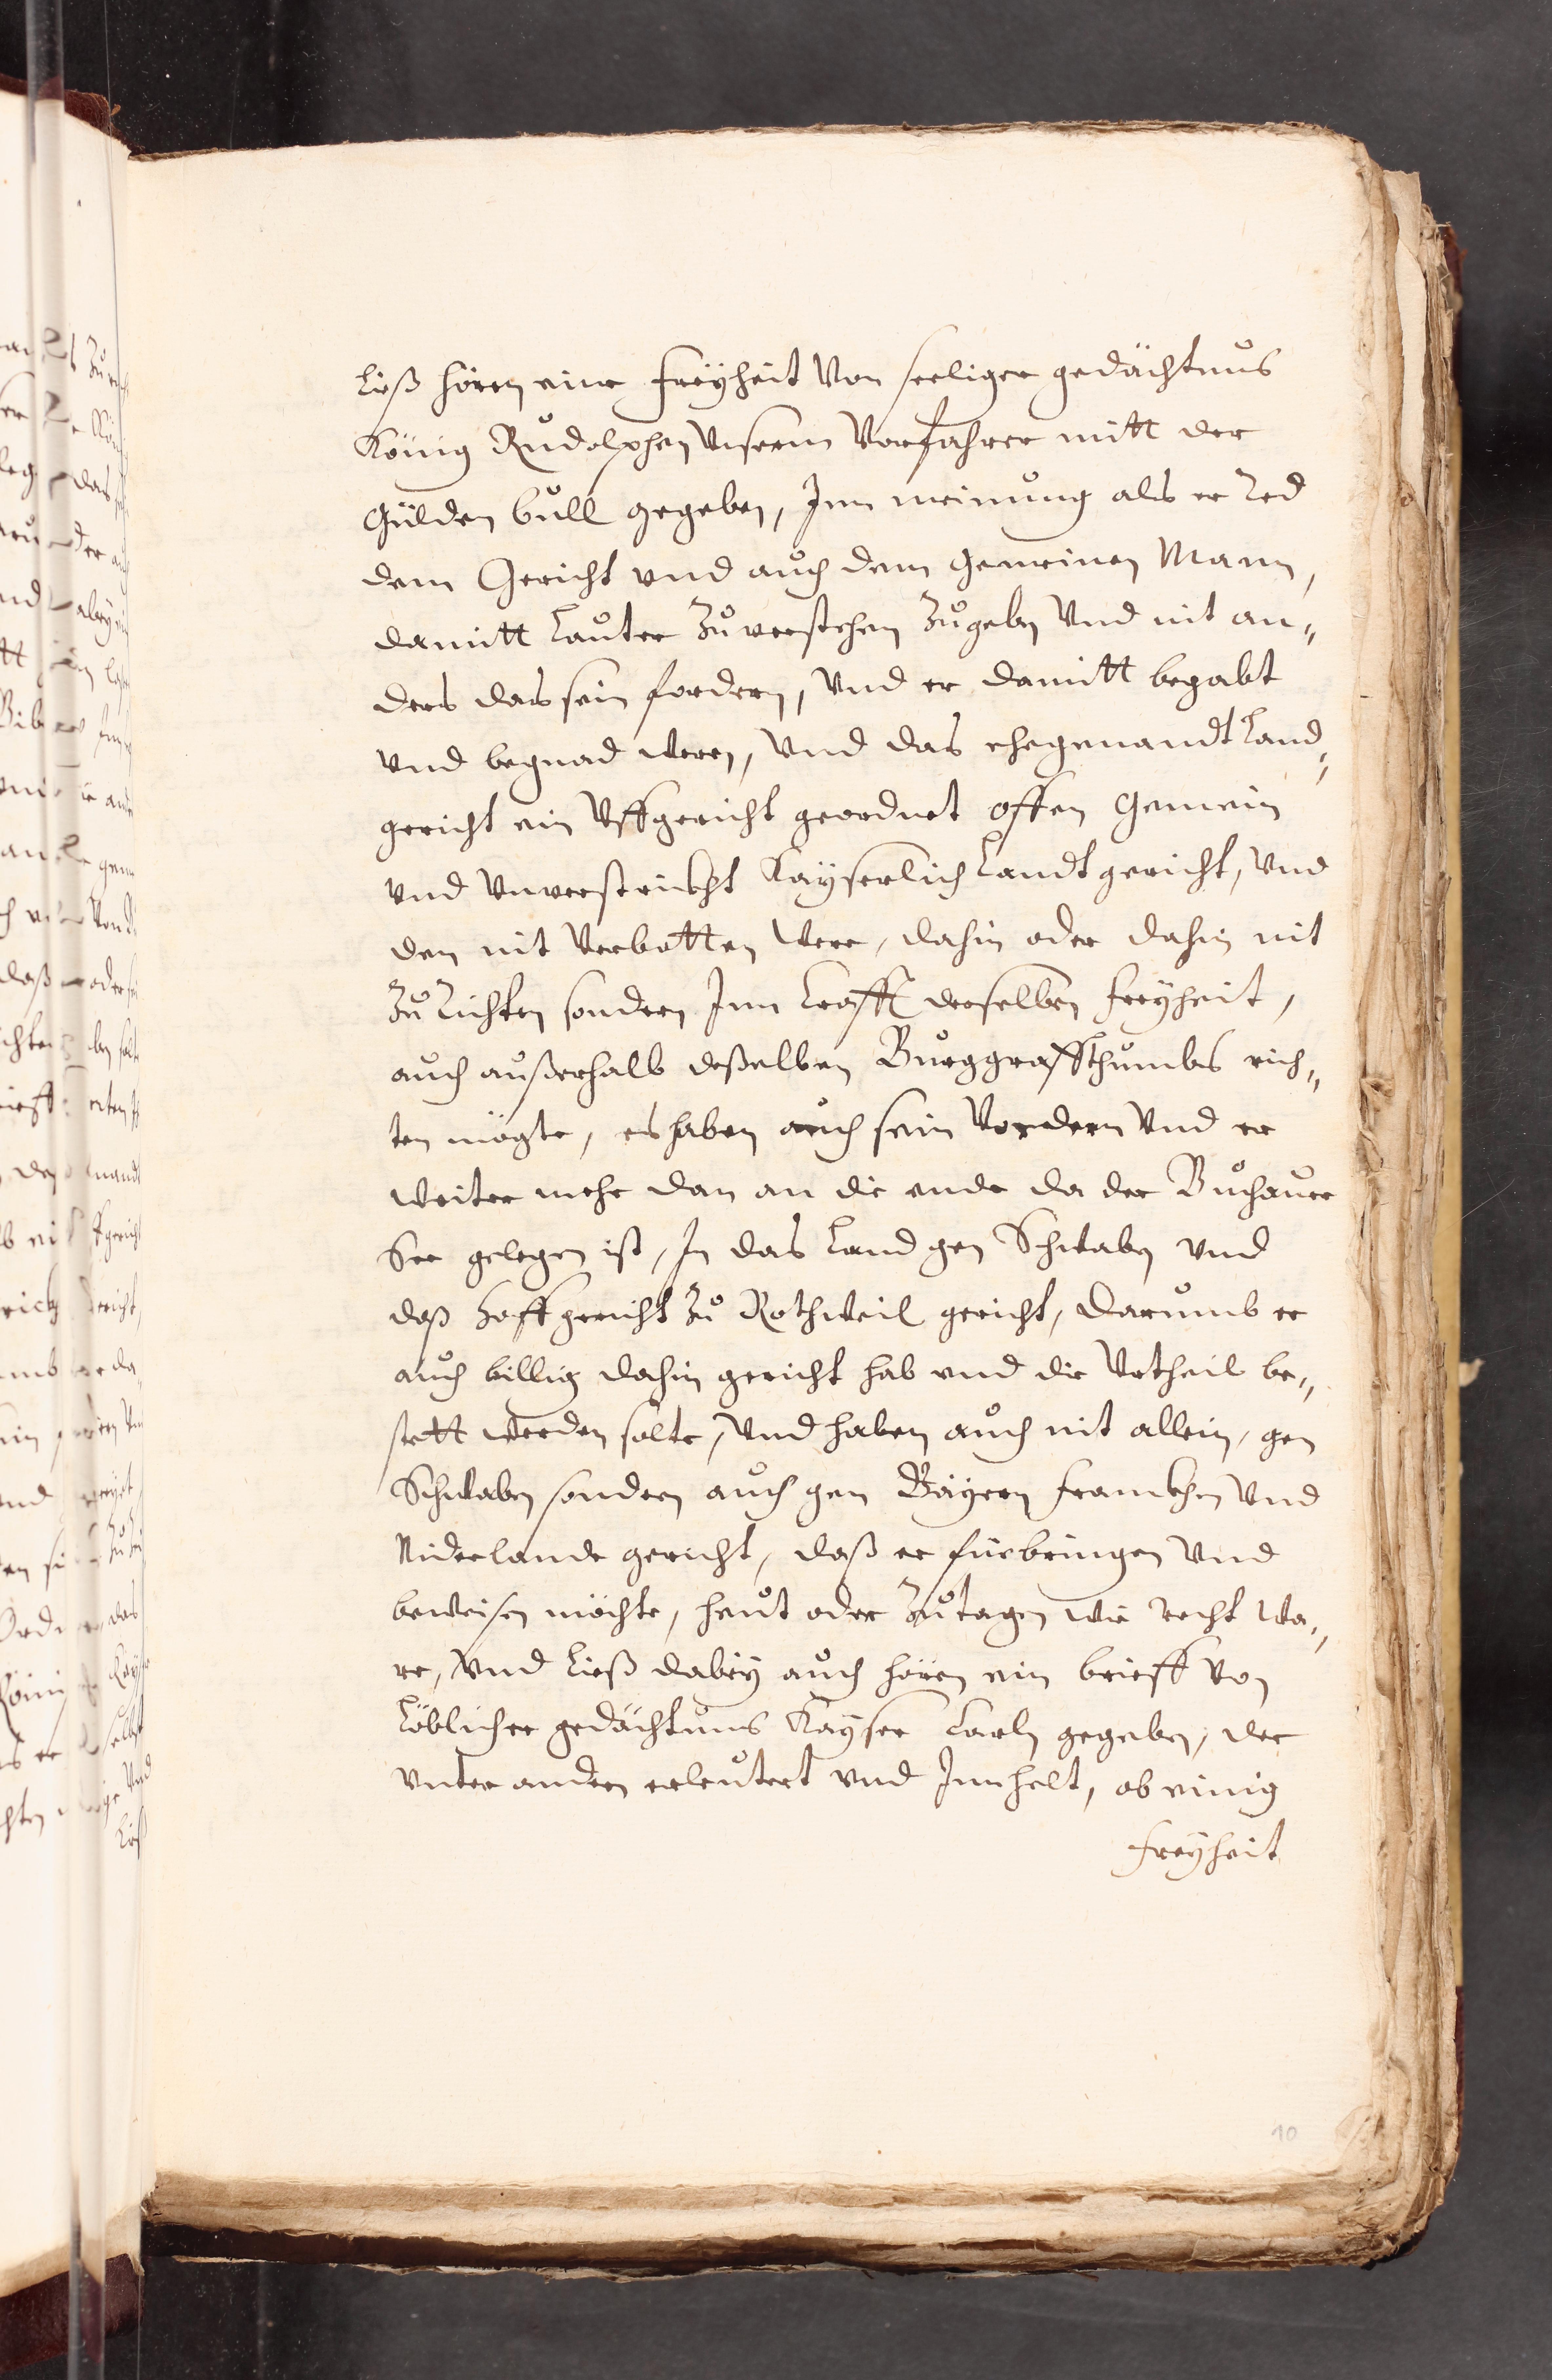 Ließ hören eine freÿheit Von seeliger gedächtnus
König Rudolphen Vnserm Vorfahrer mitt der
Gülden bull gegeben, Inn meinung als er red
dem Gericht vnd auch dem Gemeinen Mann,
damitt lauter Zuverstehen Zugeben Vnd nit an„
ders das sein fordern, Vnd er damitt begabt
vnd begnad weren, Vnd das ehegenandt Land„
gericht ein Vffgericht geordnet offen Gemein
vnd Vnverstrickht Kaÿserlich Landtgericht, Vnd
dem nit Verbotten were, dahin oder dahin nit
Zu richten sondern Inn Crafft derselben freÿheit,
auch außerhalb deßelben Burggraffthumbs rich„
ten mögte, es haben auch sein Vordern Vnd er
weiter mehr dan an die ende da der Buchauer
See gelegen ist, In das Land gen Schwaben vnd
daß Hoffgericht Zu Rothweil gericht, Darumb er
auch billig dahin gericht hab vnd die Vrtheil be„
stett werden solte, Vnd haben auch nit allein, gen
Schwaben sondern auch gen Baÿern Franckhen Vnd
Niderlande gericht, daß er fürbringen Vnd
beweisen möchte, heut oder Zutagen wie recht we„
re, Vnd Ließ dabeÿ auch hören ein brieff Von
Löblicher gedächtnus Kaÿser Carln gegeben, der
vnter andern erleutert vnd Innhelt, ob einig
freÿheit
10